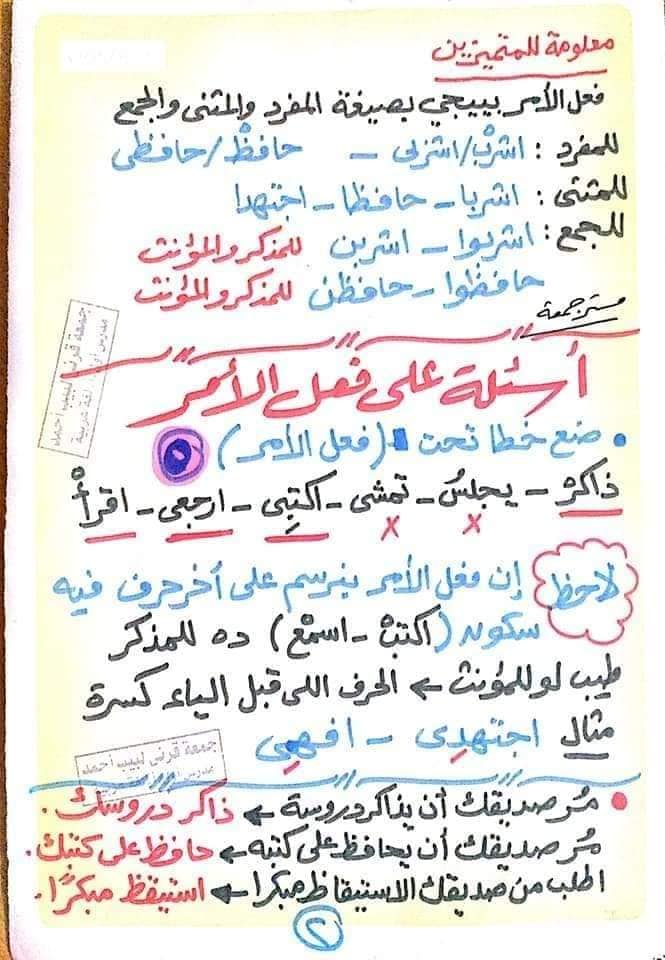 معلومة للمتميزين
فعل الأمر بييجي بصيغة المفرد والمثنى والجمع
للمفرد : اشربْ/اشربى – حافظْ/حافظى
للمثنى : اشربا – حافظا – اجتهدا
للجمع : اشربوا – اشربن للمذكر والمؤنث
حافظوا – حافظن للمذكر والمؤنث
مستر جمعة
أسئلة على فعل الأمر
• ضع خطا تحت (فعل الأمر) ٥
ذاكرْ – يجلسُ – تمشى – اكتبِى – ارجعى – اقرأْ
x x
لاحظ إن فعل الأمر بنرسم على آخر حرف فيه
سكون (اكتبْ – اسمعْ) ده للمذكر
طيب لو للمؤنث ← الحرف اللى قبل الياء كسرة
مثال اجتهدِى – افهمِى
جمعة قرنى لبيب احمد
مدرس أول لغة عربية
جمعة قرنى لبيب احمد
• مُر صديقك أن يذاكر دروسة ← ذاكر دروسك .
مُر صديقك أن يحافظ على كتبه ← حافظ على كتبك .
اطلب من صديقك الاستيقاظ مبكرا ← استيقظ مبكرًا .
٢